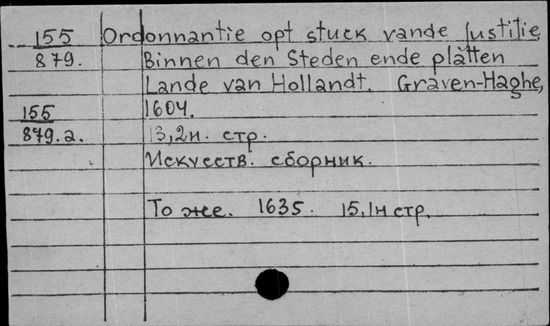 155 Ordonnantie opt stuck vande Justitie
879. Binnen den Steden ende plätten
Lande van Hollandt. Graven-Haghe,
155 1604.
879.a. 13,2н. стр.
Искусств. сборник.
То же. 1635. 15,1н стр.